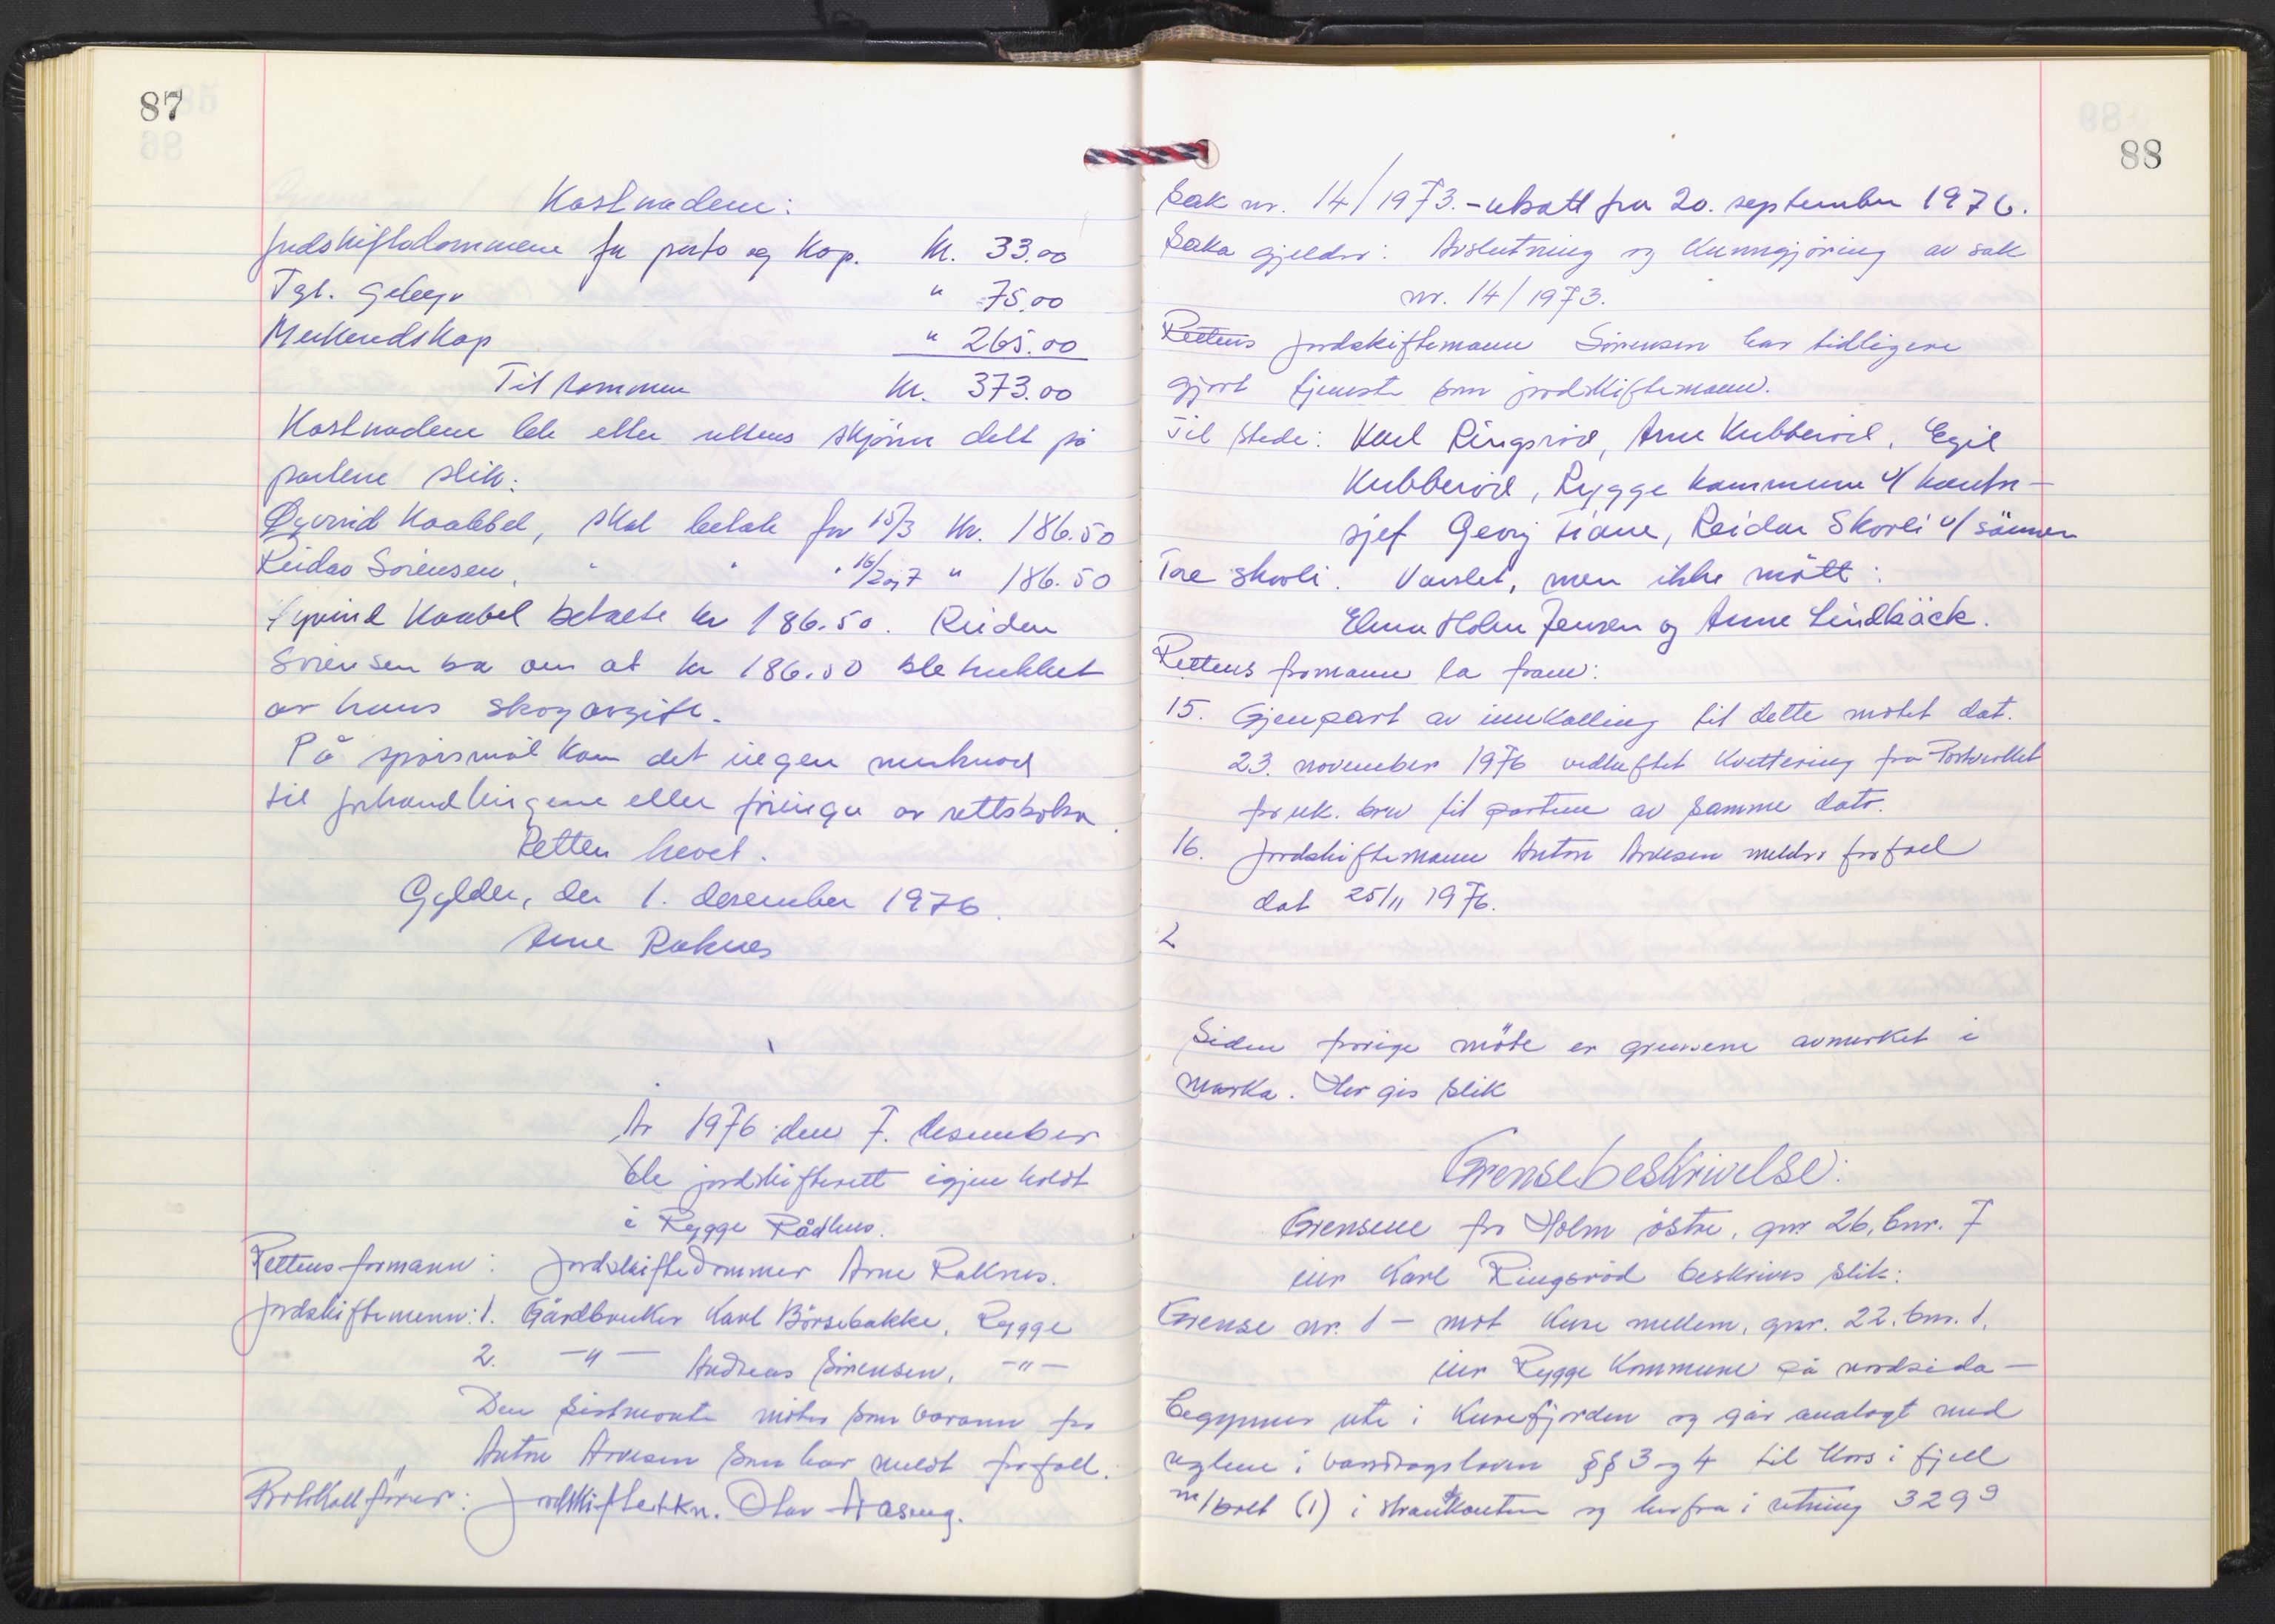 87
Kostnadene:
Jordskiftedommeren for porto og kop. kr. 33.00
Tgl. gebyr " 75.00
Merkeredskap " 265.00
Til sammen kr. 373.00
Kostnadene ble etter rettens skjønn delt på
partene slik:
Øyvind Kaabbel, skal betale for 15/3 kr. 186.50
Reidar Sørensen, " " " 16/2 og 7 " 186.50
Øyvind Kaabel betalte kr 186.50. Reidar
Sørensen ba om at kr 186.50 ble trukket
av hans skogavgift.
På spørsmål kom det ingen merknad
til forhandlingene eller føringa av rettsboka.
Retten hevet.
Gylder, den 1. desember 1976.
Arne Raknes
År 1976 den 7. desember
ble jordskifterett igjen holdt
i Rygge Rådhus.
Rettens formann: Jordskiftedommer Arne Raknes.
Jordskiftemenn: 1. Gårdbruker Karl Börsebakke, Rygge
2. -"- Andreas Sörensen, -"-
Den sistnevnte möter som varamann for
Anton Arvesen som har meldt forfall.
Protokollförer: Jordskiftetkn. Olav Aaseng.
88
Sak nr. 14/1973. - utsatt fra 20. september 1976.
Saka gjelder: Avslutning og kunngjöring av sak
nr. 14/1973.
Rettens jordskiftemann Sörensen har tidligere
gjort tjeneste som jordskiftemann.
Til stede: Karl Ringsröd, Arne Kubberöd, Egil
Kubberöd, Rygge kommune v/ kontor-
sjef Georg Tiane, Reidar Skovli v/ sönnen
Tore Skovli. Varslet, men ikke mött:
Elna Holm Jensen og Anne Lindbäck.
Rettens formann la fram:
15. Gjenpart av innkalling til dette mötet dat.
23. november 1976 vedheftet kvittering fra Postverket
for rek. brev til partene av samme dato.
16. Jordskiftemann Anton Arvesen melder forfall
dat 25/11 1976.
2
Siden forrige möte er grensene avmerket i
marka. Her gis slik
Grensebeskrivelse:
Grensene for Holm östre, gnr. 26, bnr. 7
eier Karl Ringsröd beskrives slik:
Grense nr. 1 - mot Kure mellem, gnr. 22. bnr. 1,
eier Rygge Kommune på nordsida -
Begynner ute i Kurefjorden og går analogt med
reglene i vassdragsloven §§ 3 og 4 til kors i fjell
m/bolt (1) i strandkanten og herfra i retning 329 g